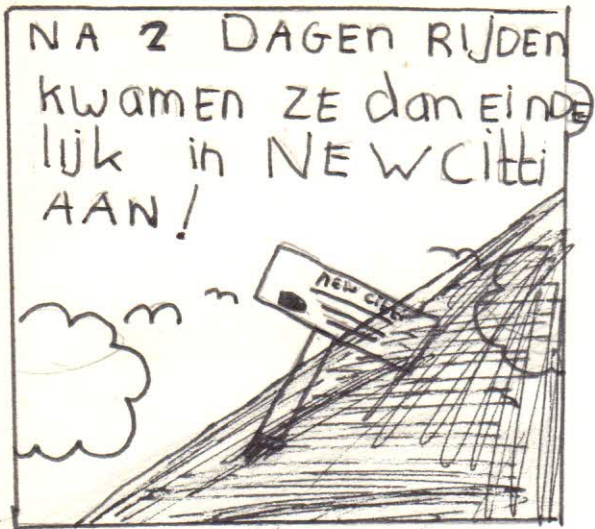 NA 2 DAGEN RIJDEN
kwamEN ZE dan EiNDE
lijk in NEWCitti
AAN!
NEW Citti